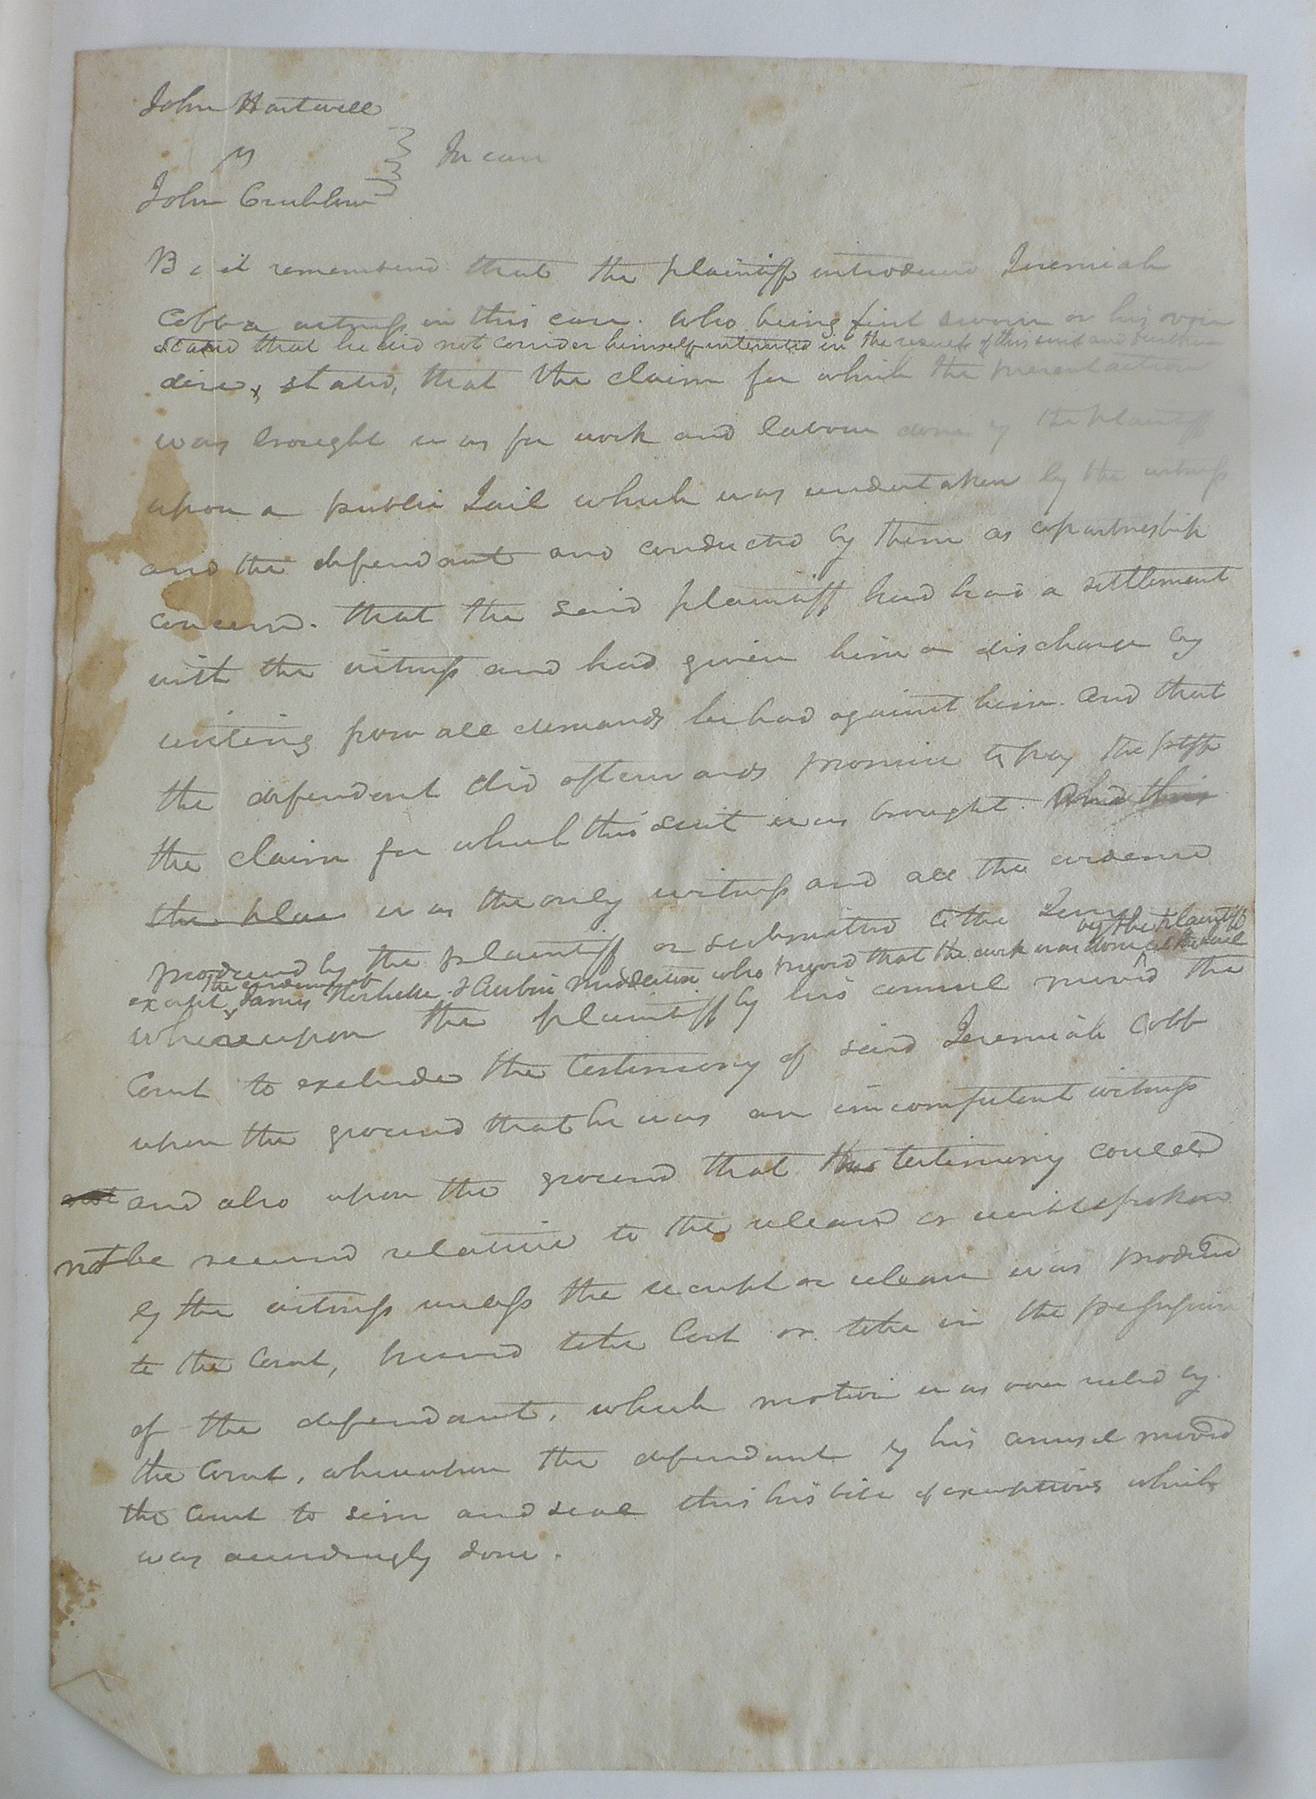 John Hartwell
vs } In case
John Crublaw
Be it remembered that the plaintiff introduced Jeremiah
Cobb a witness in this case. who being first sworn on his voir
stated that he did not consider himself interested in the result of this suit and further
dire, stated, that the claim for which the present action
was brought was for work and labour done by the plaintiff
upon a public Jail which was undertaken by the witness
and the defendant and conducted by them as copartnership
concern. that the said plaintiff had had a settlement
with the witness and had given him a discharge by
writing from all demands he had against him. and that
the defendant did afterwards promise to pay the ptff
the claim for which this suit was brought. And this
the plea was the only witness and all the evidence
produced by the plaintiff or submitted to the Jury
by the plaintiff
except the evidence of James & Aubin who proved that the work was done on the Jail
whereupon the plaintiff by his counsel moved the
Court to exclude the testimony of said Jeremiah Cobb
upon the ground that he was an incompetent witness
and also upon the ground that his testimony could
not be received relative to the release or spoken
by the witness unless the receipt or release was produced
to the Court, proved to be lost or to be in the possession
of the defendant. which motion was over ruled by
the Court, whereupon the defendant by his counsel moved
the Court to sign and seal this his bill of exceptions which
was accordingly done.